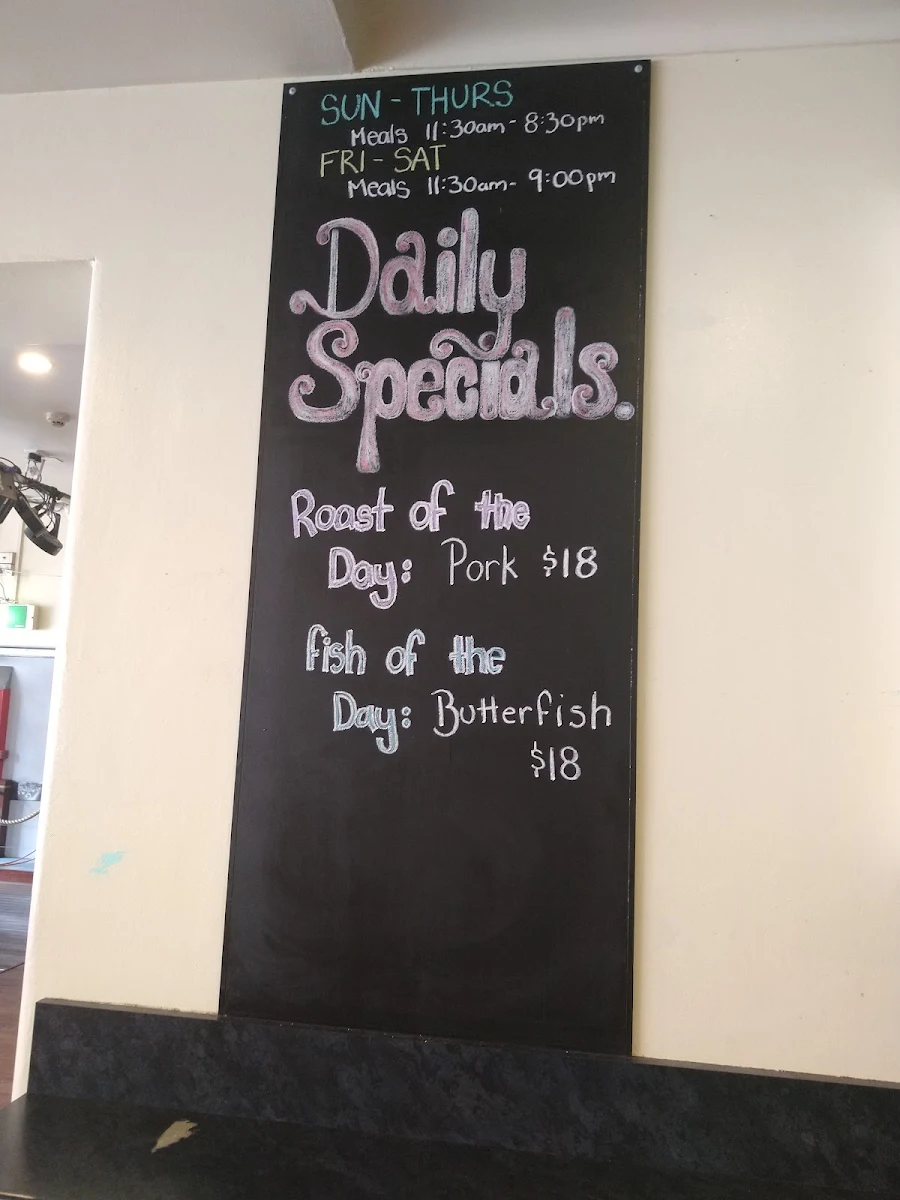 SUN - THURS
Meals 11:30am - 8:30pm
FRI - SAT
Meals 11:30am - 9:00pm
Daily
Specials.
Roast of the
Day: Pork $18
fish of the
Day: Butterfish
$18